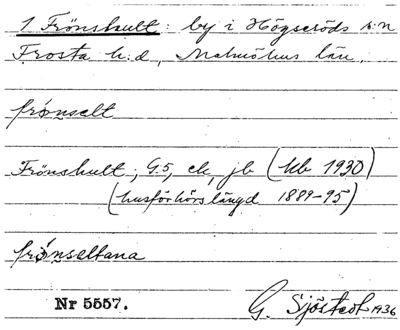 1. Frönshult: by i Högseröds s:n
Frosta h:d, Malmöhus län.
frǿnselt
Frönshult, G.5, ek, jb (kb 1930)
(husförhörslängd 1889-95)
frǿnseltana
Nr 5557.
G. Sjöstedt 1936